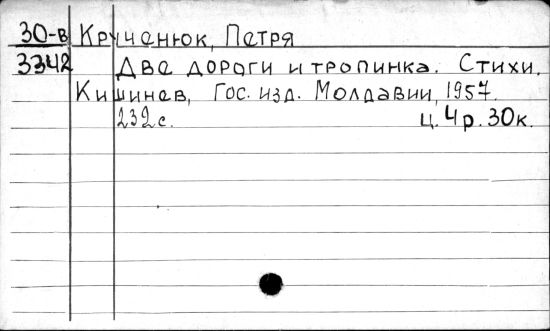 30-в Крученюк, Петря
3342 Две дороги и тропинка. Стихи.
Кишинев, Гос. изд. Молдавии, 1957.
232 с. ц. 4 р. 30 к.